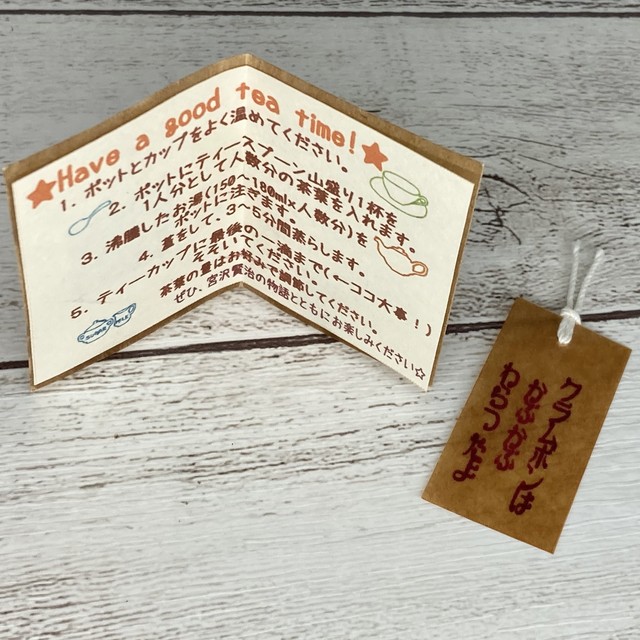 ★Have a good tea time!★
1. ポットとカップをよく温めてください。
2. ポットにティースプーン山盛り1杯を
1人分として人数分の茶葉を入れます。
3. 沸騰したお湯(150～180ml×人数分)を
ポットに注ぎます。
4. 蓋をして、3～5分間蒸らします。
5. ティーカップに最後の一滴まで(←ココ大事！)
そそいでください。
茶葉の量はお好みで調節してください。
ぜひ、宮沢賢治の物語とともにお楽しみください☆
SUGAR
MILK
クラムボンは
かぷかぷ
わらつたよ